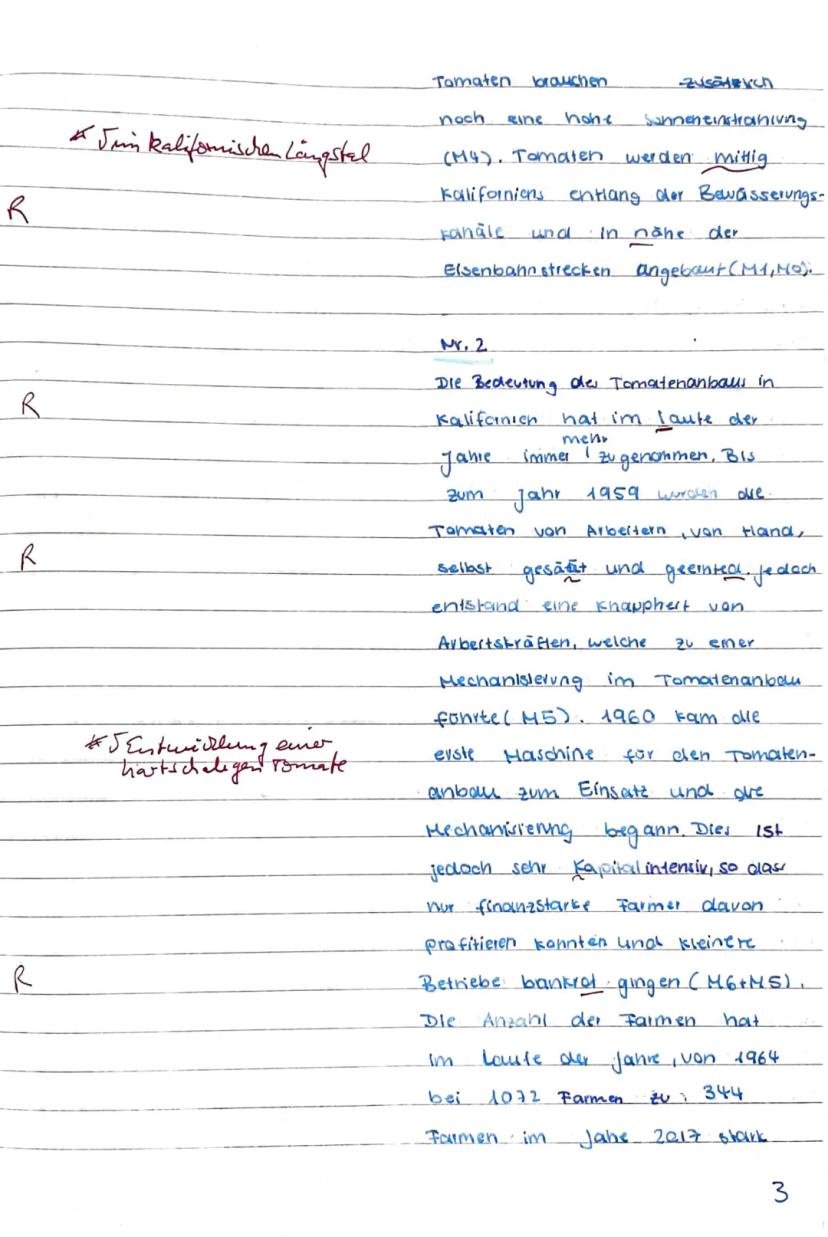 Tomaten brauchen zusätzlich
noch eine hohe Sonneneinstrahlung
* √ im kalifornischen Längstal
(M4). Tomaten werden mittig
R
Kaliforniens entlang der Bewässerungs-
kanäle und in nähe der
Eisenbahnstrecken angebaut (M1, M0).
Nr. 2
Die Bedeutung des Tomatenanbaus in
R
Kalifornien hat im laufe der
mehr
Jahre immer zugenommen. Bis
zum Jahr 1959 wurden die
Tomaten von Arbeitern, von Hand,
R
selbst gesäät und geernted. Jedoch
entstand eine Knappheit von
Arbeitskräften, welche zu einer
Mechanisierung im Tomatenanbau
führte (M5). 1960 kam die
* √ Entwicklung einer
hartschaligen Tomate
erste Maschine für den Tomaten-
anbau zum Einsatz und die
Mechanisierung begann. Dies ist
jedoch sehr Kapitalintensiv, so dass
nur finanzstarke Farmer davon
profitieren konnten und kleinere
R
Betriebe bankrot gingen (M6+M5).
Die Anzahl der Farmen hat
im Laufe der Jahre, von 1964
bei 1072 Farmen zu 344
Farmen im Jahe 2017 stark
3